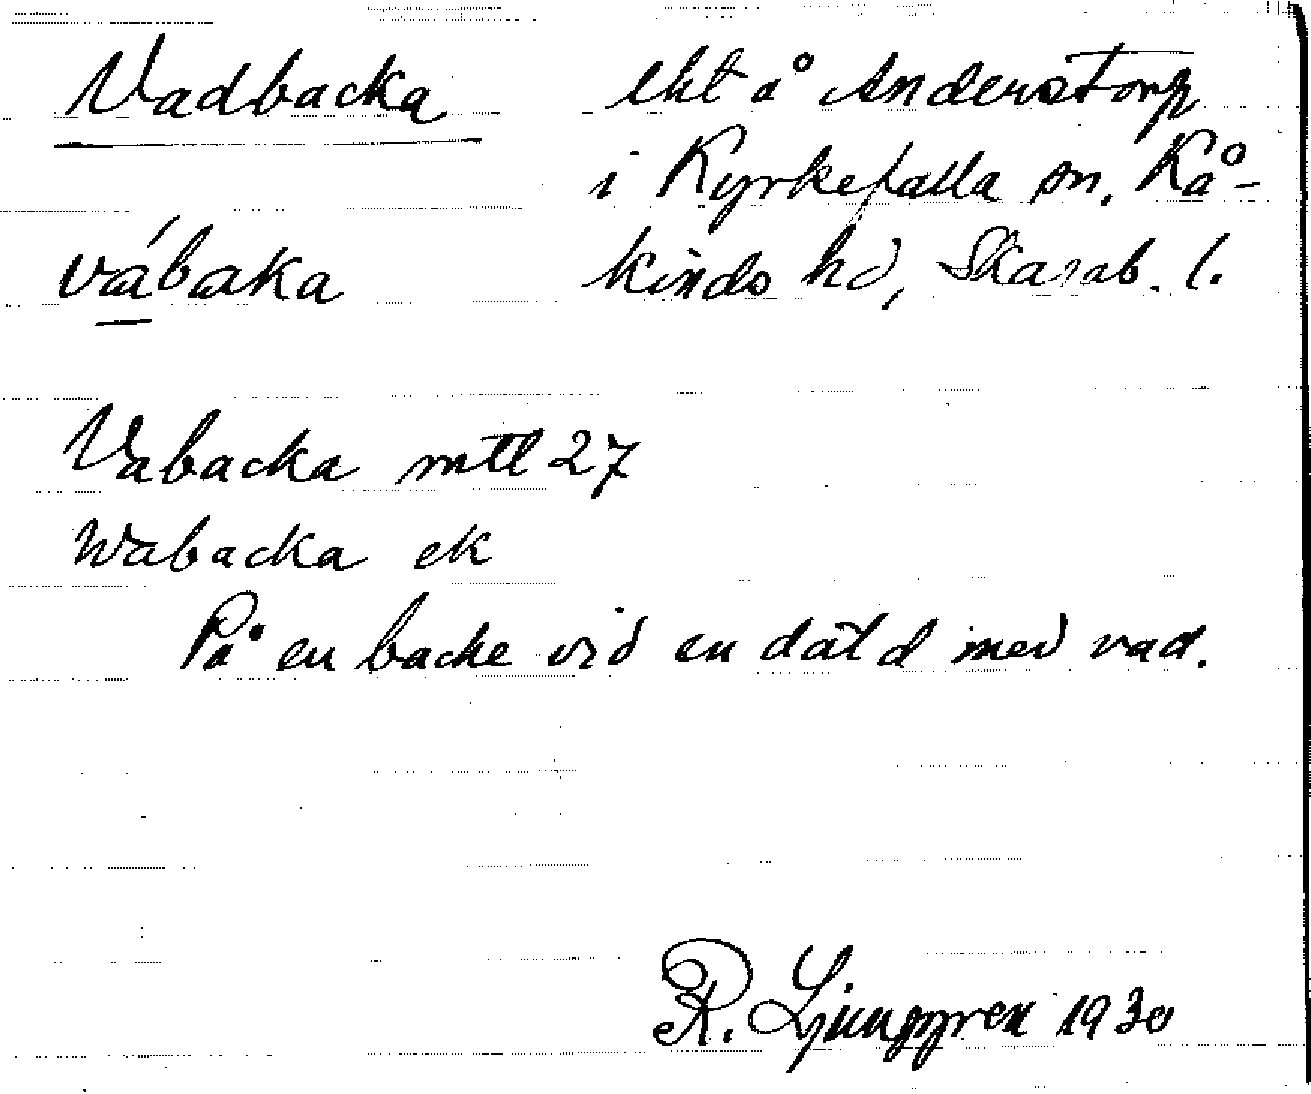 Vadbacka lht å Anderstorp
i Kyrkefalla sn, Kå-
vábaka kinds hd, Skarab. l.
Vabacka mtl 27
Wabacka ek
På en backe vid en däld med vad.
R. Ljunggren 1930